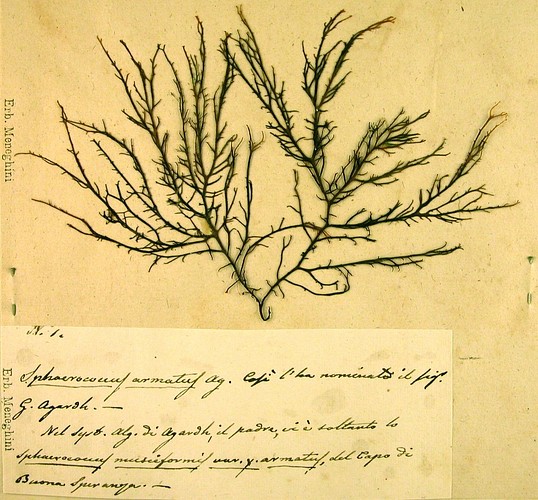 Erb. Meneghini
Erb. Meneghini
N. 1.
Sphaerococcus armatus Ag. Così l'ha nominato il Sig.
G. Agardh. —
Nel Syst. Alg. di Agardh, il padre, vi è soltanto lo
Sphaerococcus musciformis var. γ. armatus, del Capo di
Buona Speranza. —